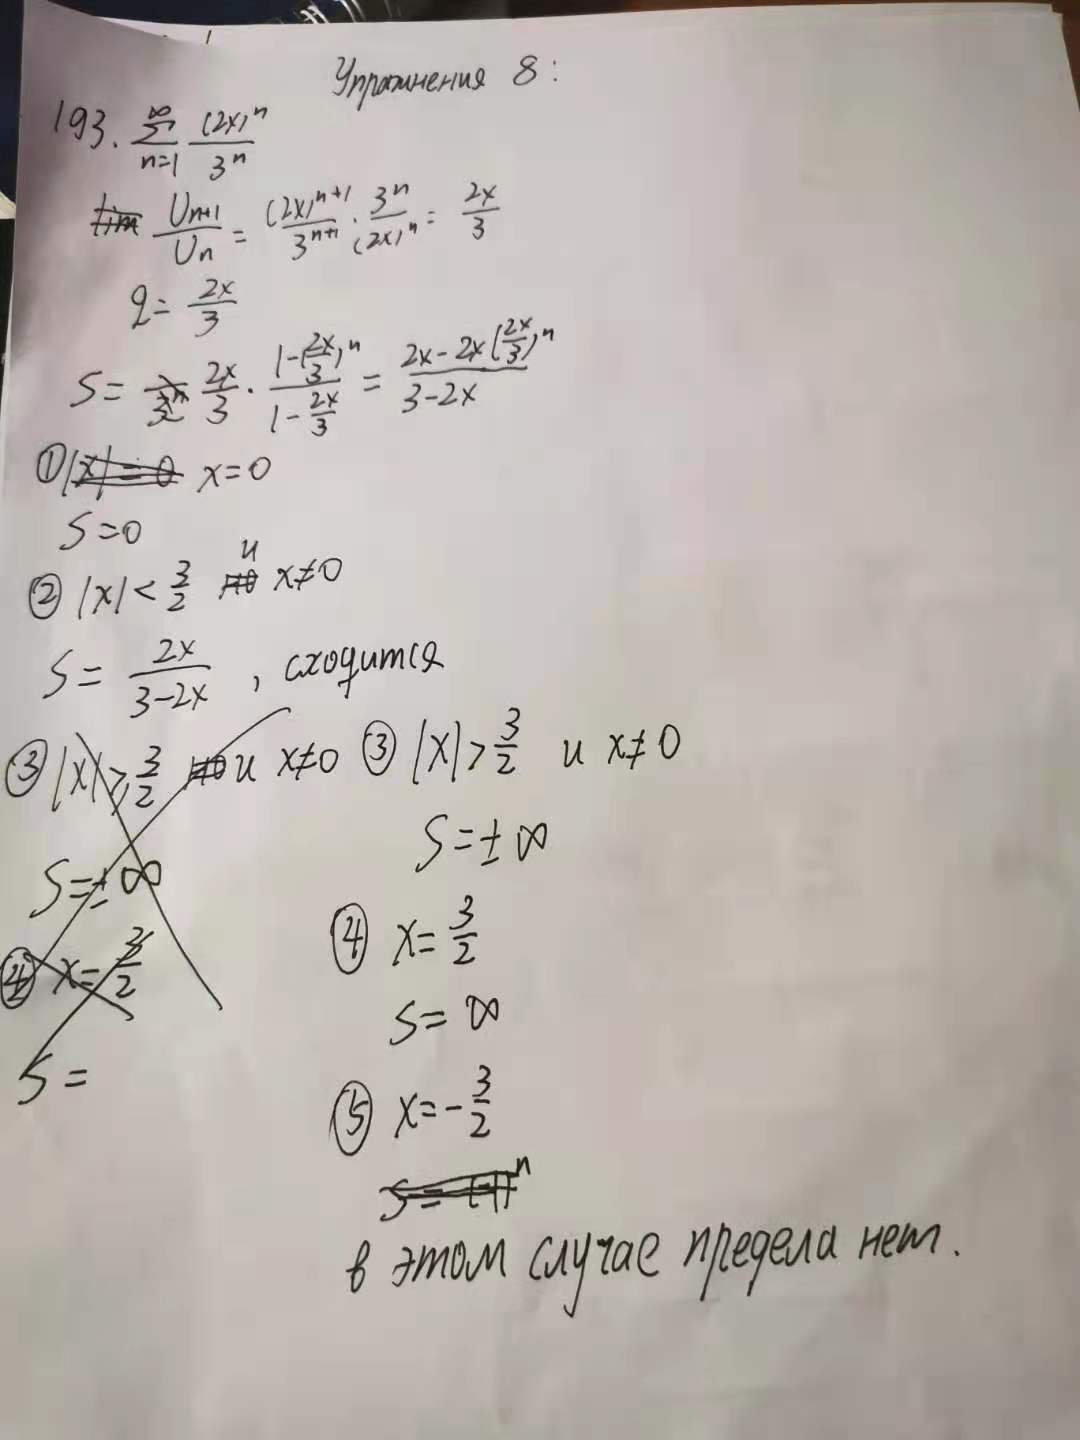 Упражнения 8:
193. ∑_{n=1}^{∞} (2x)^n / 3^n
lim U_{n+1} / U_n = (2x)^{n+1} / 3^{n+1} · 3^n / (2x)^n = 2x / 3
q = 2x / 3
S = 2x / 3 · (1 - (2x/3)^n) / (1 - 2x/3) = (2x - 2x(2x/3)^n) / (3 - 2x)
① |x| = 0 x = 0
S = 0
② |x| < 3/2 и x ≠ 0
S = 2x / (3 - 2x), сходится
③ |x| ⩾ 3/2 и x ≠ 0
S = ± ∞
④ x = 3/2
S =
③ |x| > 3/2 и x ≠ 0
S = ± ∞
④ x = 3/2
S = ∞
⑤ x = - 3/2
S = (-1)^n
в этом случае предела нет.